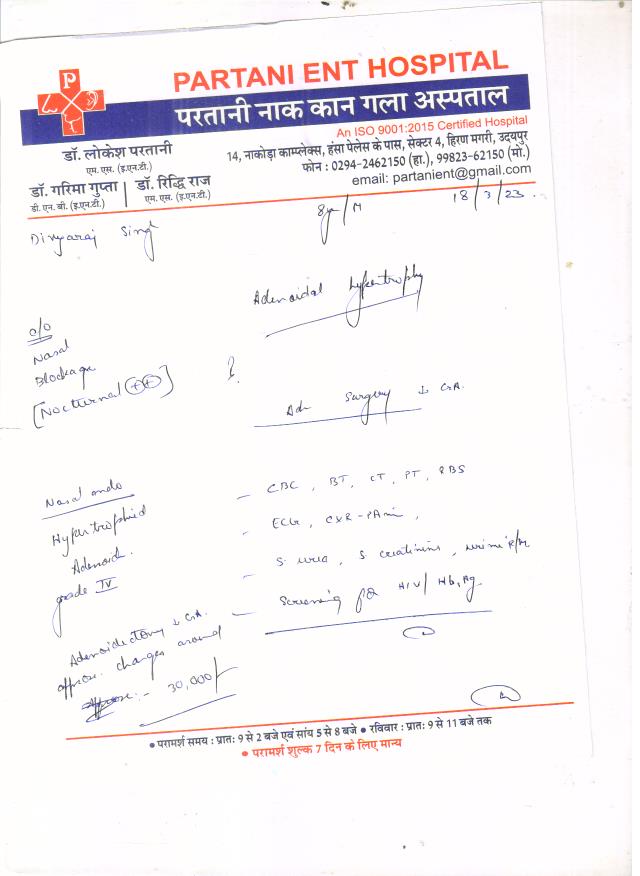 P
PARTANI ENT HOSPITAL
परतानी नाक कान गला अस्पताल
An ISO 9001:2015 Certified Hospital
14, नाकोड़ा काम्प्लेक्स, हंसा पेलेस के पास, सेक्टर 4, हिरण मगरी, उदयपुर
फोन : 0294-2462150 (हा.), 99823-62150 (मो.)
email: partanient@gmail.com
डॉ. लोकेश परतानी
एम.एस. (इ.एन.टी.)
डॉ. गरिमा गुप्ता | डॉ. रिद्धि राज
डी. एन. बी. (इ.एन.टी.) | एम.एस. (इ.एन.टी.)
Divyaraj Singh 8yr/M 18/3/23
Adenoidal hypertrophy
c/o
Nasal
Blockage
[Nocturnal ++]
Adv Surgery ↓ GA.
Nasal endo
Hypertrophied
Adenoid.
grade IV
Adenoidectomy ↓ GA.
approx. charges around
:- 30,000/-
- CBC, BT, CT, PT, RBS
- ECG, CXR-PA
- S. urea, S creatinine, urine R/M
- Screening for HIV/HbsAg
• परामर्श समय : प्रातः 9 से 2 बजे एवं सांय 5 से 8 बजे • रविवार : प्रातः 9 से 11 बजे तक
• परामर्श शुल्क 7 दिन के लिए मान्य